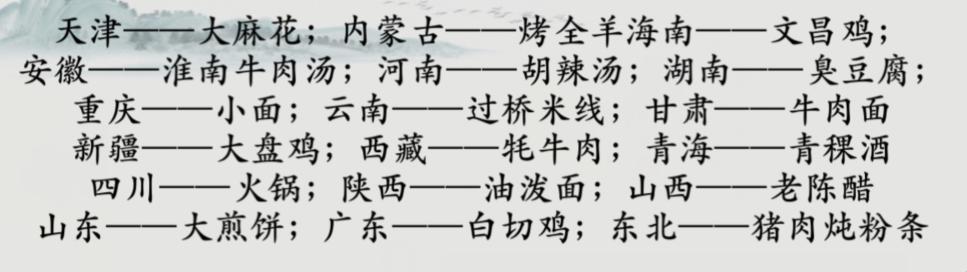 天津——大麻花；内蒙古——烤全羊海南——文昌鸡；
安徽——淮南牛肉汤；河南——胡辣汤；湖南——臭豆腐；
重庆——小面；云南——过桥米线；甘肃——牛肉面
新疆——大盘鸡；西藏——牦牛肉；青海——青稞酒
四川——火锅；陕西——油泼面；山西——老陈醋
山东——大煎饼；广东——白切鸡；东北——猪肉炖粉条